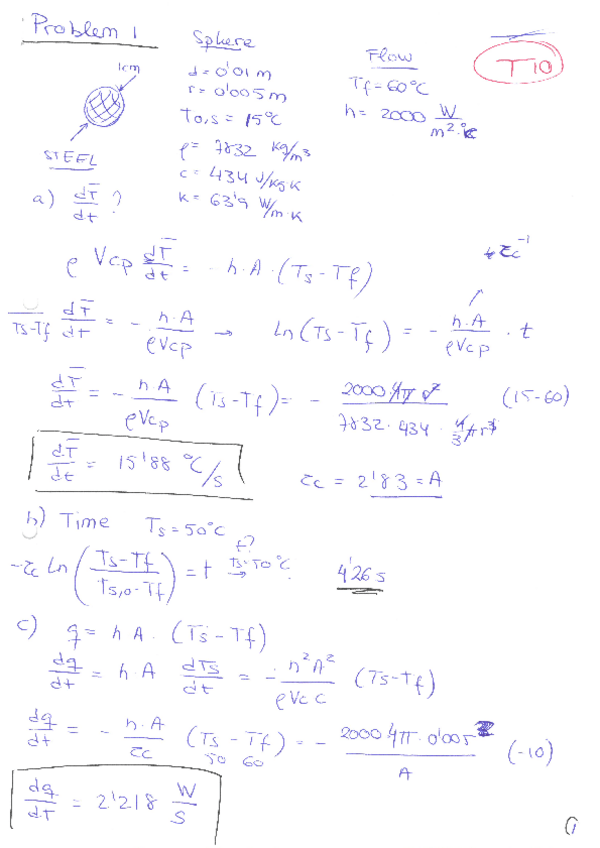 Problem 1
Sphere
Flow
T10
1cm
d = 0'01 m
r = 0'005 m
T0,s = 15°C
ρ = 7832 kg/m³
c = 434 J/kg K
k = 63'9 W/m K
Tf = 60°C
h = 2000 W/m²·K
STEEL
a) dT̄/dt ?
ρ V cp dT̄/dt = - h·A·(Ts - Tf)
τc⁻¹
1/(Ts-Tf) dT̄/dt = - h·A/(ρVcp) → Ln(Ts - Tf) = - h·A/(ρVcp) · t
dT̄/dt = - hA/(ρVcp) (Ts - Tf) = - 2000·4π r²/(7832·434·4/3 π r³) (15-60)
dT̄/dt = 15'88 °C/s
τc = 2'83 = A
b) Time Ts = 50°C
-τc Ln((Ts - Tf)/(Ts,0 - Tf)) = t → t? Ts=50°C 4'26 s
c) q = h A · (Ts - Tf)
dq/dt = h·A dTs/dt = - h²A²/(ρVcc) (Ts - Tf)
dq/dt = - h·A/τc (Ts - Tf) = - 2000 4π·0'005²/A (-10)
50 60
dq/dT = 2'218 W/s